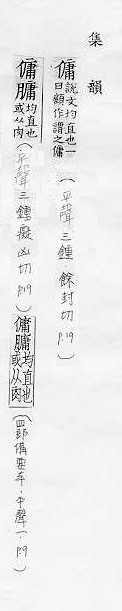 集韻
傭 說文均直也一曰顧作謂之傭 (平聲三鍾 餘封切 P.19)
傭𦟛 均直也或从肉 (平聲三鍾 癡凶切 P.19) 傭𦟛 均直也或从肉
(四部備要本·平聲一·P.9)